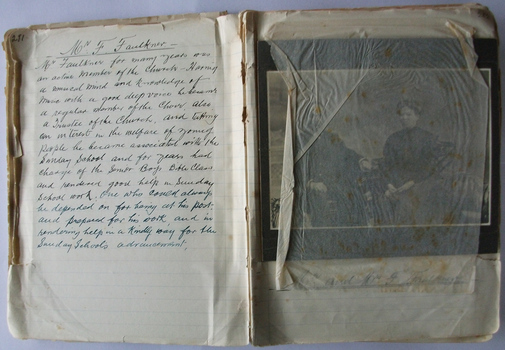 231
Mr F. Faulkner
Mr Faulkner for many years was
an active member of the Church. Having
a musical mind and knowledge of
music with a good deep voice he became
a regular member of the Choir, also
a Trustee of the Church, and taking
an interest in the welfare of young
people he became associated with the
Sunday School and for years had
charge of the Senior Boys Bible Class
and rendered good help in Sunday
School work. One who could always
be depended on for being at his post
and prepared for his work and in
rendering help in a kindly way for the
Sunday Schools advancement.
and Mr F.